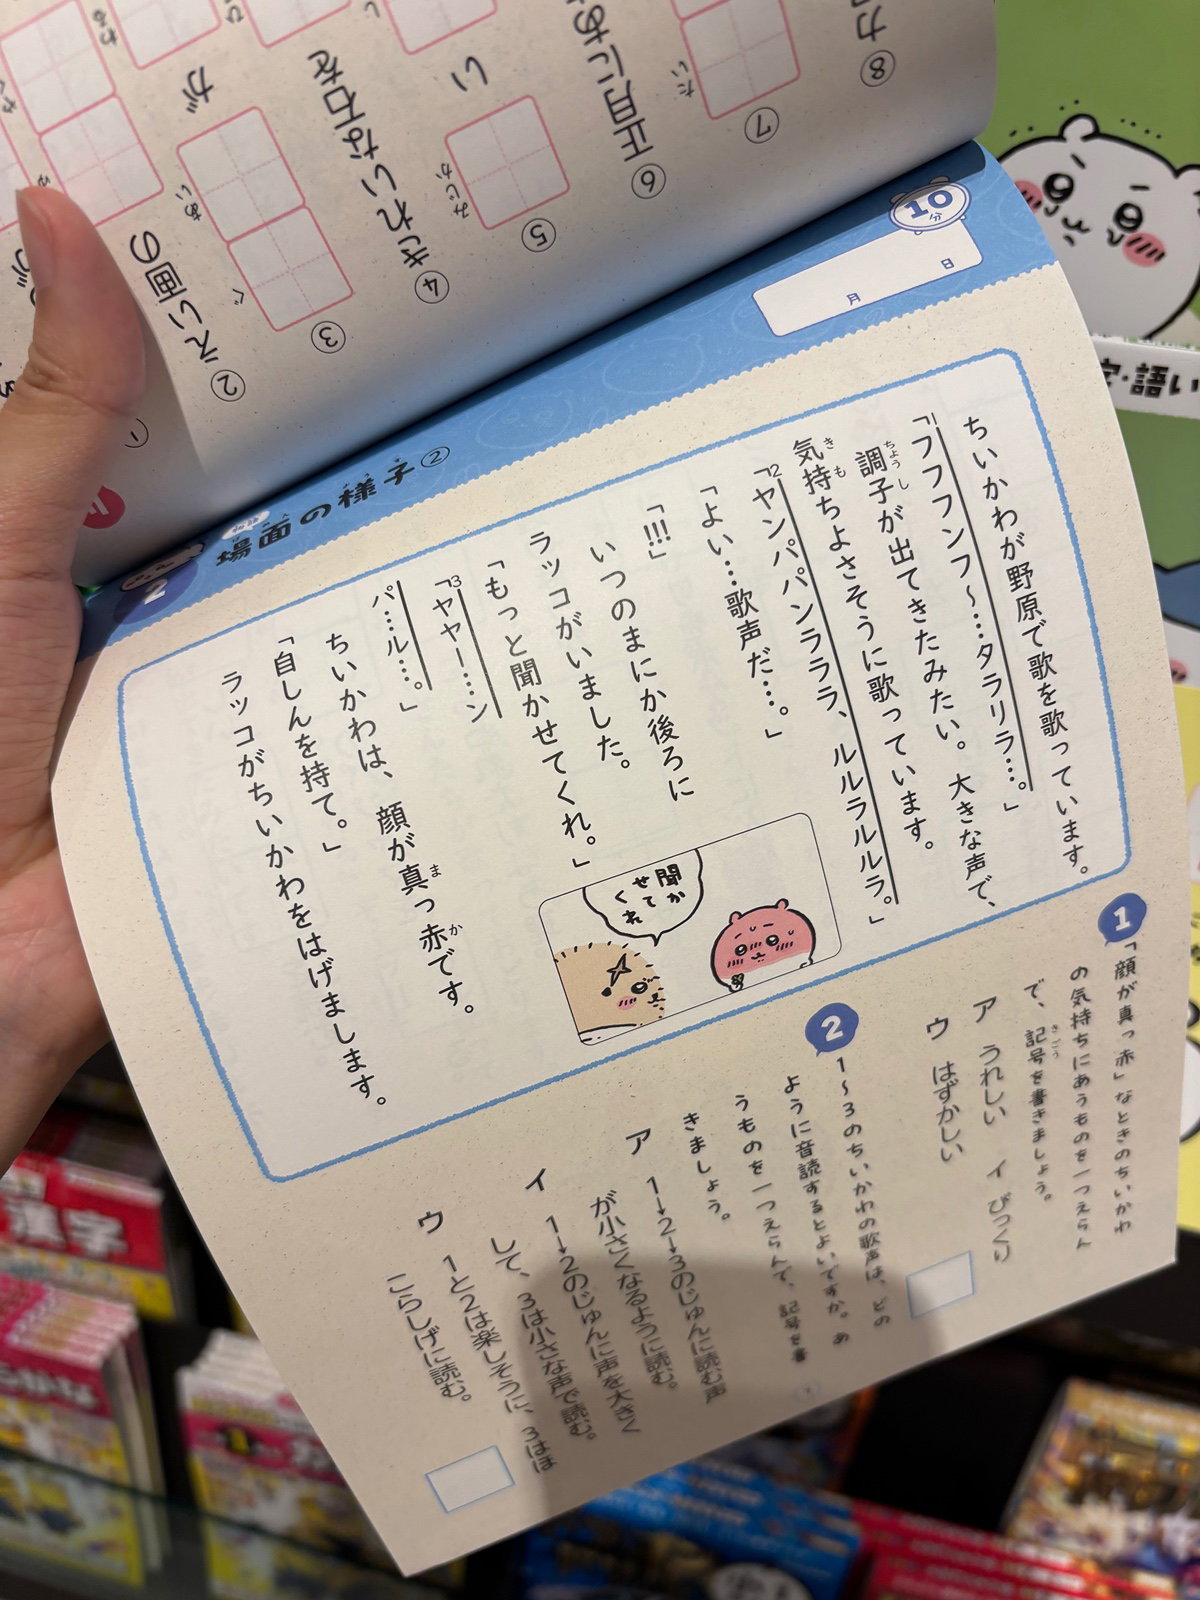 10分
月 日
2 場面の様子②
ちいかわが野原で歌を歌っています。
1「フフフンフ〜…タラリラ…。」
調子が出てきたみたい。大きな声で、
気持ちよさそうに歌っています。
2「ヤンパパンラララ、ルルラルルラ。」
「よい…歌声だ…。」
「!!!」
いつのまにか後ろに
ラッコがいました。
「もっと聞かせてくれ。」
3「ヤヤー……ン
パ…ル…。」
ちいかわは、顔が真っ赤です。
「自しんを持て。」
ラッコがちいかわをはげまします。
聞か
せて
くれ
1 「顔が真っ赤」なときのちいかわ
の気持ちにあうものを一つえらん
で、記号を書きましょう。
ア うれしい イ びっくり
ウ はずかしい
2 1〜3のちいかわの歌声は、どの
ように音読するとよいですか。あ
うものを一つえらんで、記号を書
きましょう。
ア 1→2→3のじゅんに読む声
が小さくなるように読む。
イ 1→2のじゅんに声を大きく
して、3は小さな声で読む。
ウ 1と2は楽しそうに、3はほ
こらしげに読む。
⑧カ
⑦
たい
⑥正月にお
⑤
みじか
い
④きれいな石を
③
ぐ
あい
が
②えい画の
①
字・語い
漢字